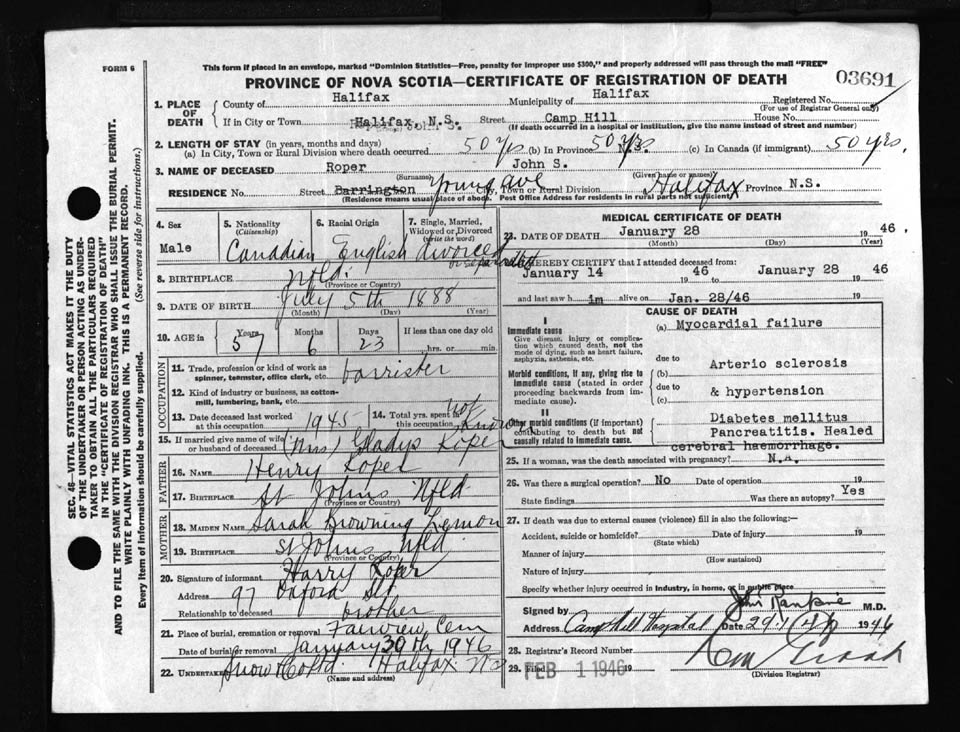 FORM 6
This form if placed in an envelope, marked "Dominion Statistics—Free, penalty for improper use $300," and properly addressed will pass through the mail "FREE"
PROVINCE OF NOVA SCOTIA—CERTIFICATE OF REGISTRATION OF DEATH
03691
1. PLACE OF DEATH
County of Halifax Municipality of Halifax Registered No.
(For use of Registrar General only)
If in City or Town Halifax, N.S. Street Camp Hill House No.
(If death occurred in a hospital or institution, give the name instead of street and number)
2. LENGTH OF STAY (in years, months and days)
(a) In City, Town or Rural Division where death occurred 50 yrs (b) In Province 50 yrs (c) In Canada (if immigrant) 50 yrs.
3. NAME OF DECEASED Roper John S.
(Surname) (Given name or names)
RESIDENCE No Street Barrington Young ave City, Town or Rural Division Halifax Province N.S.
(Residence means usual place of abode. Post Office Address for residents in rural parts not sufficient)
4. Sex Male
5. Nationality (Citizenship) Canadian
6. Racial Origin English
7. Single, Married, Widowed or Divorced (write the word) divorced
8. BIRTHPLACE Nfld.
(Province or Country)
9. DATE OF BIRTH July 5th 1888
(Month) (Day) (Year)
10. AGE in Years 57 Months 6 Days 23 If less than one day old
hrs. or min.
OCCUPATION
11. Trade, profession or kind of work as spinner, teamster, office clerk, etc. barrister
12. Kind of industry or business, as cotton-mill, lumbering, bank, etc.
13. Date deceased last worked at this occupation 1945
14. Total yrs. spent in this occupation not known
15. If married give name of wife or husband of deceased (Mrs) Gladys Roper
FATHER
16. NAME Henry Roper
17. BIRTHPLACE St Johns Nfld
(Province or Country)
MOTHER
18. MAIDEN NAME Sarah Browning Lemon
19. BIRTHPLACE St Johns Nfld
(Province or Country)
20. Signature of informant Harry Roper
Address 97 Oxford St
Relationship to deceased brother
21. Place of burial, cremation or removal Fairview Cem
Date of burial or removal January 30th 1946
22. Undertaker Snow & Co Ltd. Halifax NS
(Name and address)
MEDICAL CERTIFICATE OF DEATH
23. DATE OF DEATH January 28 1946
(Month) (Day) (Year)
24. I HEREBY CERTIFY that I attended deceased from:
January 14 1946 to January 28 1946
and last saw him alive on Jan. 28/46 19
CAUSE OF DEATH
I
Immediate cause
Give disease, injury or complication which caused death, not the mode of dying, such as heart failure, asphyxia, asthenia, etc.
(a) Myocardial failure
due to
Morbid conditions, if any, giving rise to immediate cause (stated in order proceeding backwards from immediate cause).
(b) Arterio sclerosis
due to
(c) & hypertension
II
Other morbid conditions (if important) contributing to death but not causally related to immediate cause.
Diabetes mellitus
Pancreatitis. Healed
cerebral haemorrhage.
25. If a woman, was the death associated with pregnancy? N.A.
26. Was there a surgical operation? No Date of operation 19
State findings Was there an autopsy? Yes
27. If death was due to external causes (violence) fill in also the following:—
Accident, suicide or homicide? Date of injury 19
(State which)
Manner of injury
(How sustained)
Nature of injury
Specify whether injury occurred in industry, in home, or in public place
Signed by John Rankine M.D.
Address Camp Hill Hospital Date 29-1-46 1946
28. Registrar's Record Number
29. Filed FEB 1 1946
(Division Registrar)
SEC. 48—VITAL STATISTICS ACT MAKES IT THE DUTY
OF THE UNDERTAKER OR PERSON ACTING AS UNDER-
TAKER TO OBTAIN ALL THE PARTICULARS REQUIRED
IN THE "CERTIFICATE OF REGISTRATION OF DEATH"
AND TO FILE THE SAME WITH THE DIVISION REGISTRAR WHO SHALL ISSUE THE BURIAL PERMIT.
WRITE PLAINLY WITH UNFADING INK. THIS IS A PERMANENT RECORD.
Every item of information should be carefully supplied. (See reverse side for instructions.)